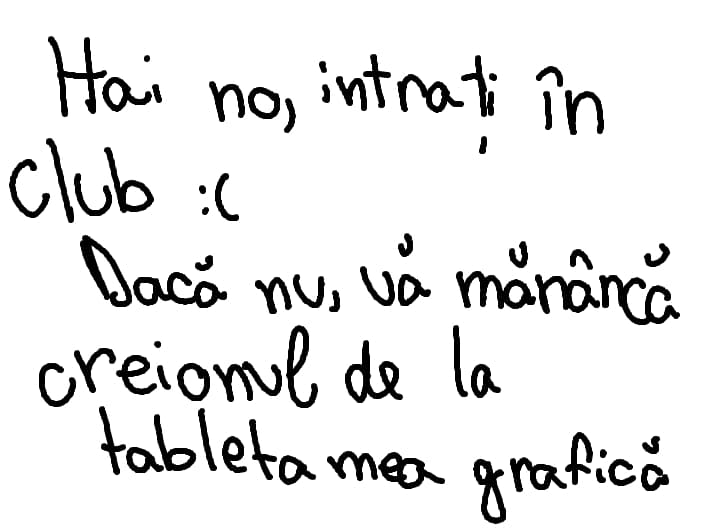 Hai no, intrați în
club :(
Dacă nu, vă mănâncă
creionul de la
tableta mea grafică